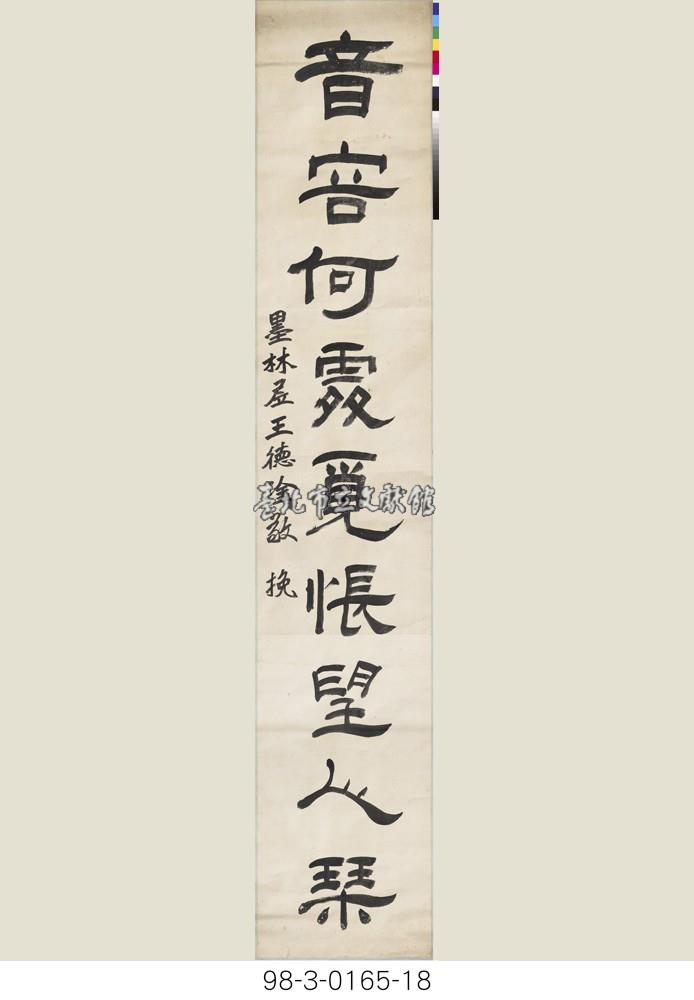 音容何處覓悵望人琹
墨林王德敬 挽
臺北市立文献館
98-3-0165-18